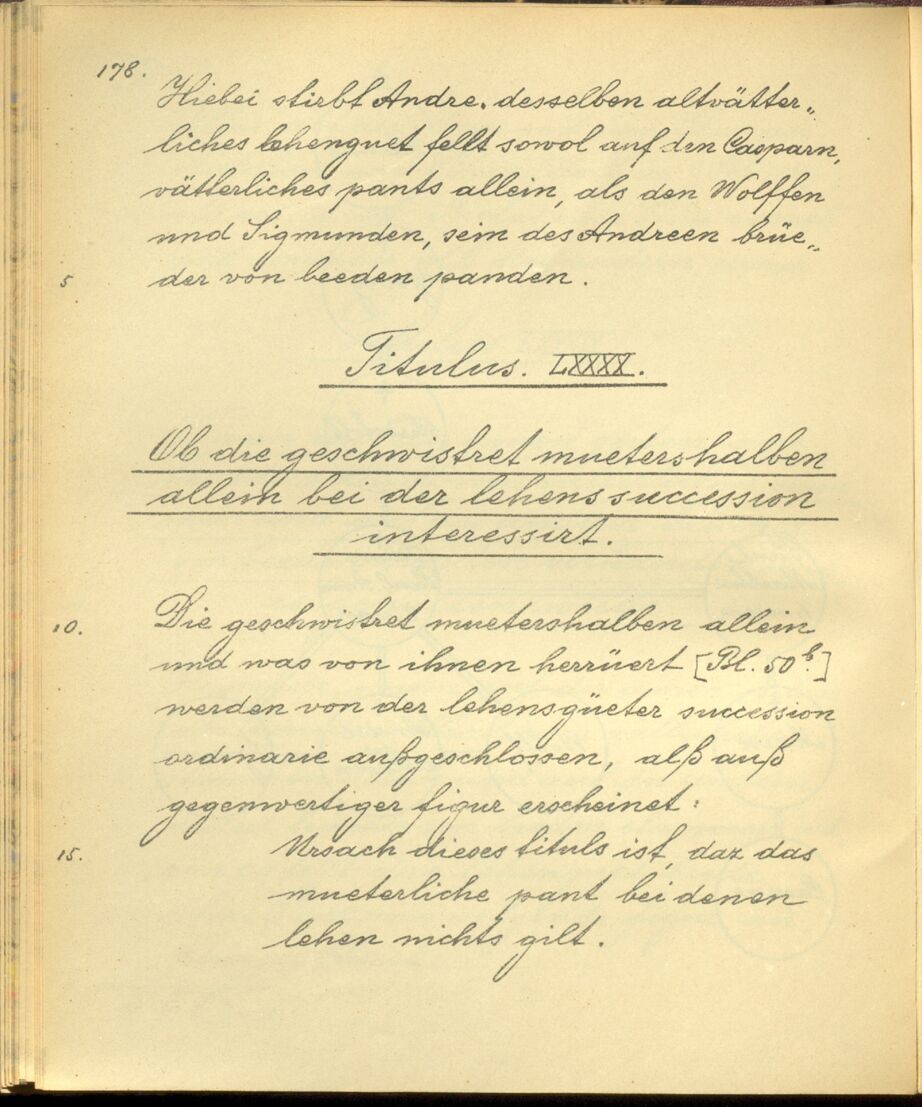 178.
Hiebei stirbt Andre. desselben altvätter„
liches lehenguet fellt sowol auf den Casparn,
vätterliches pants allein, als den Wolffen
und Sigmunden, sein des Andreen brüe„
5 der von beeden panden.
Titulus. LXXXX.
Ob die geschwistret muetershalben
allein bei der lehenssuccession
interessirt.
10. Die geschwistret muetershalben allein
und was von ihnen herrüert [Bl. 50b.]
werden von der lehensgüeter succession
ordinarie außgeschlossen, alß auß
gegenwertiger figur erscheinet:
15. Ursach dieses tituls ist, daz das
mueterliche pant bei denen
lehen nichts gilt.